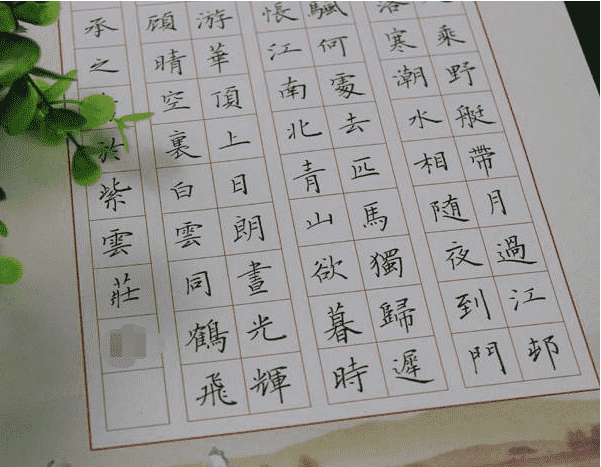 乘野艇帶月過江邨
寒潮水相随夜到門
颿何處去匹馬獨歸遲
悵江南北青山欲暮時
游華頂上日朗晝光輝
顧晴空裏白雲同鶴飛
承之於紫雲莊